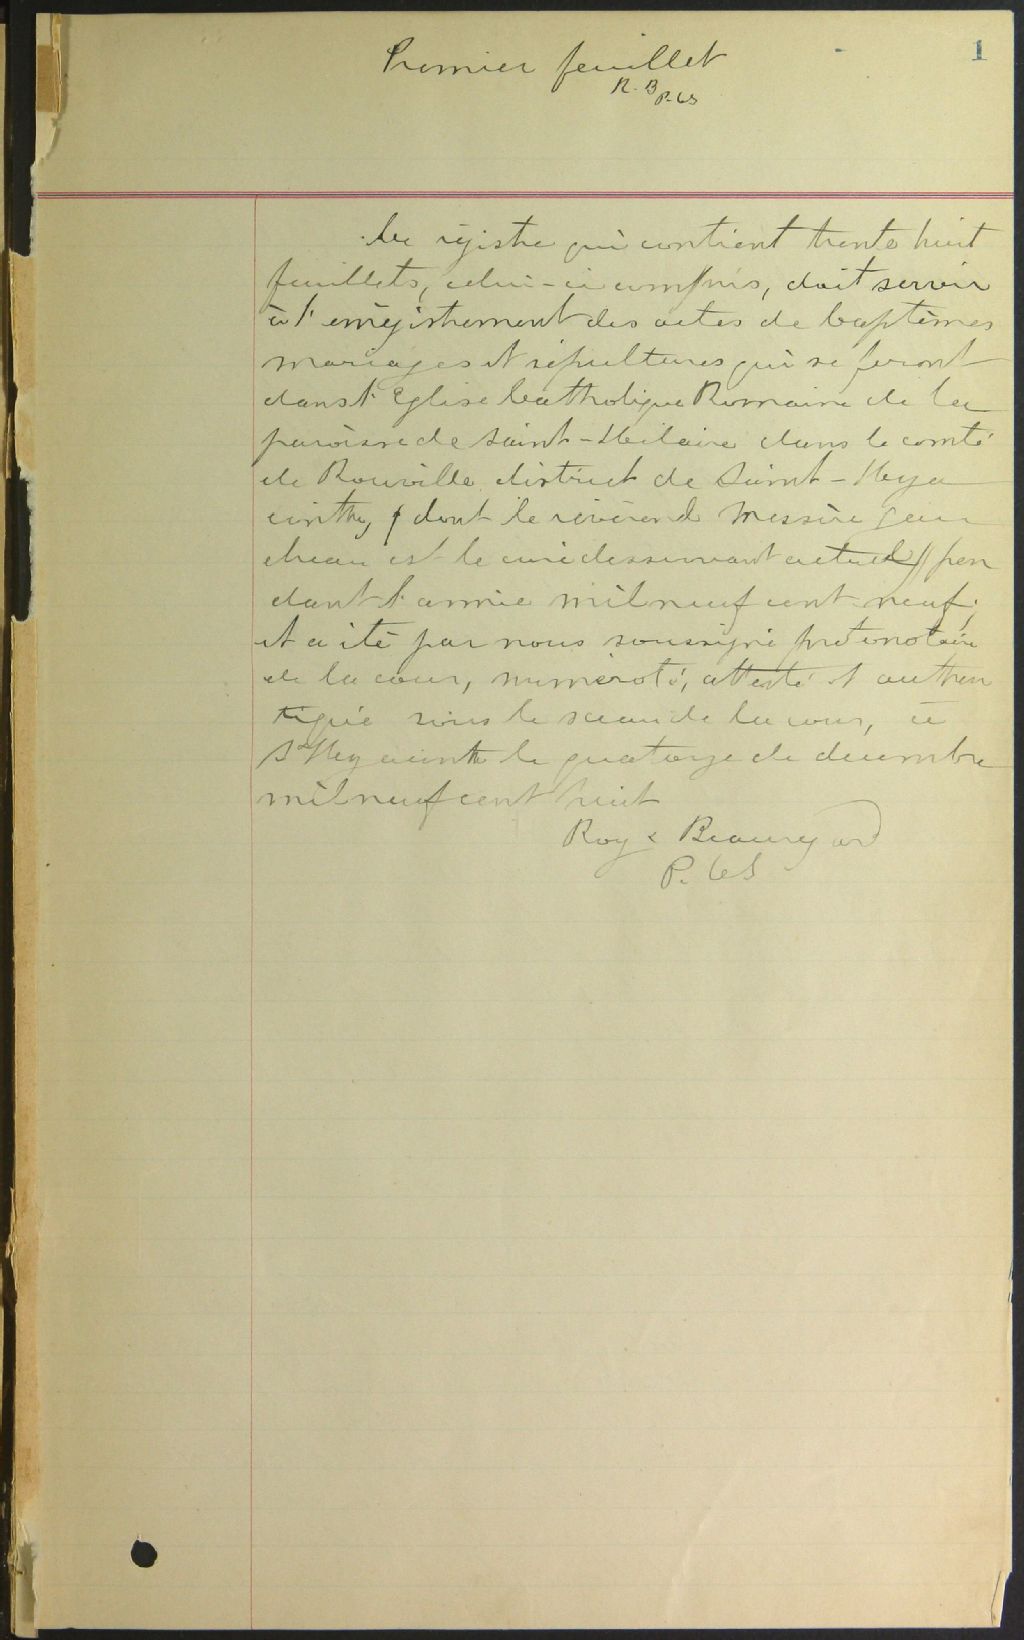 1
Premier feuillet
R. B
P. CS
Ce régistre qui contient trente huit
feuillets, celui-ci compris, doit servir
à l'enrégistrement des actes de baptêmes
mariages et sépultures qui se feront
dans l'Eglise Catholique Romaine de la
paroisse de Saint-Hilaire dans le comté
de Rouville district de Saint-Hya
cinthe, dont le révérend Messire
est le curé desservant actuel // pen
dant l'année mil neuf cent neuf,
et a été par nous soussigné protonotaire
de la cour, numéroté, attesté et authen
tiqué sous le sceau de la cour, à
St Hyacinthe le quatorze de decembre
mil neuf cent huit
Roy & Beauregard
P. CS